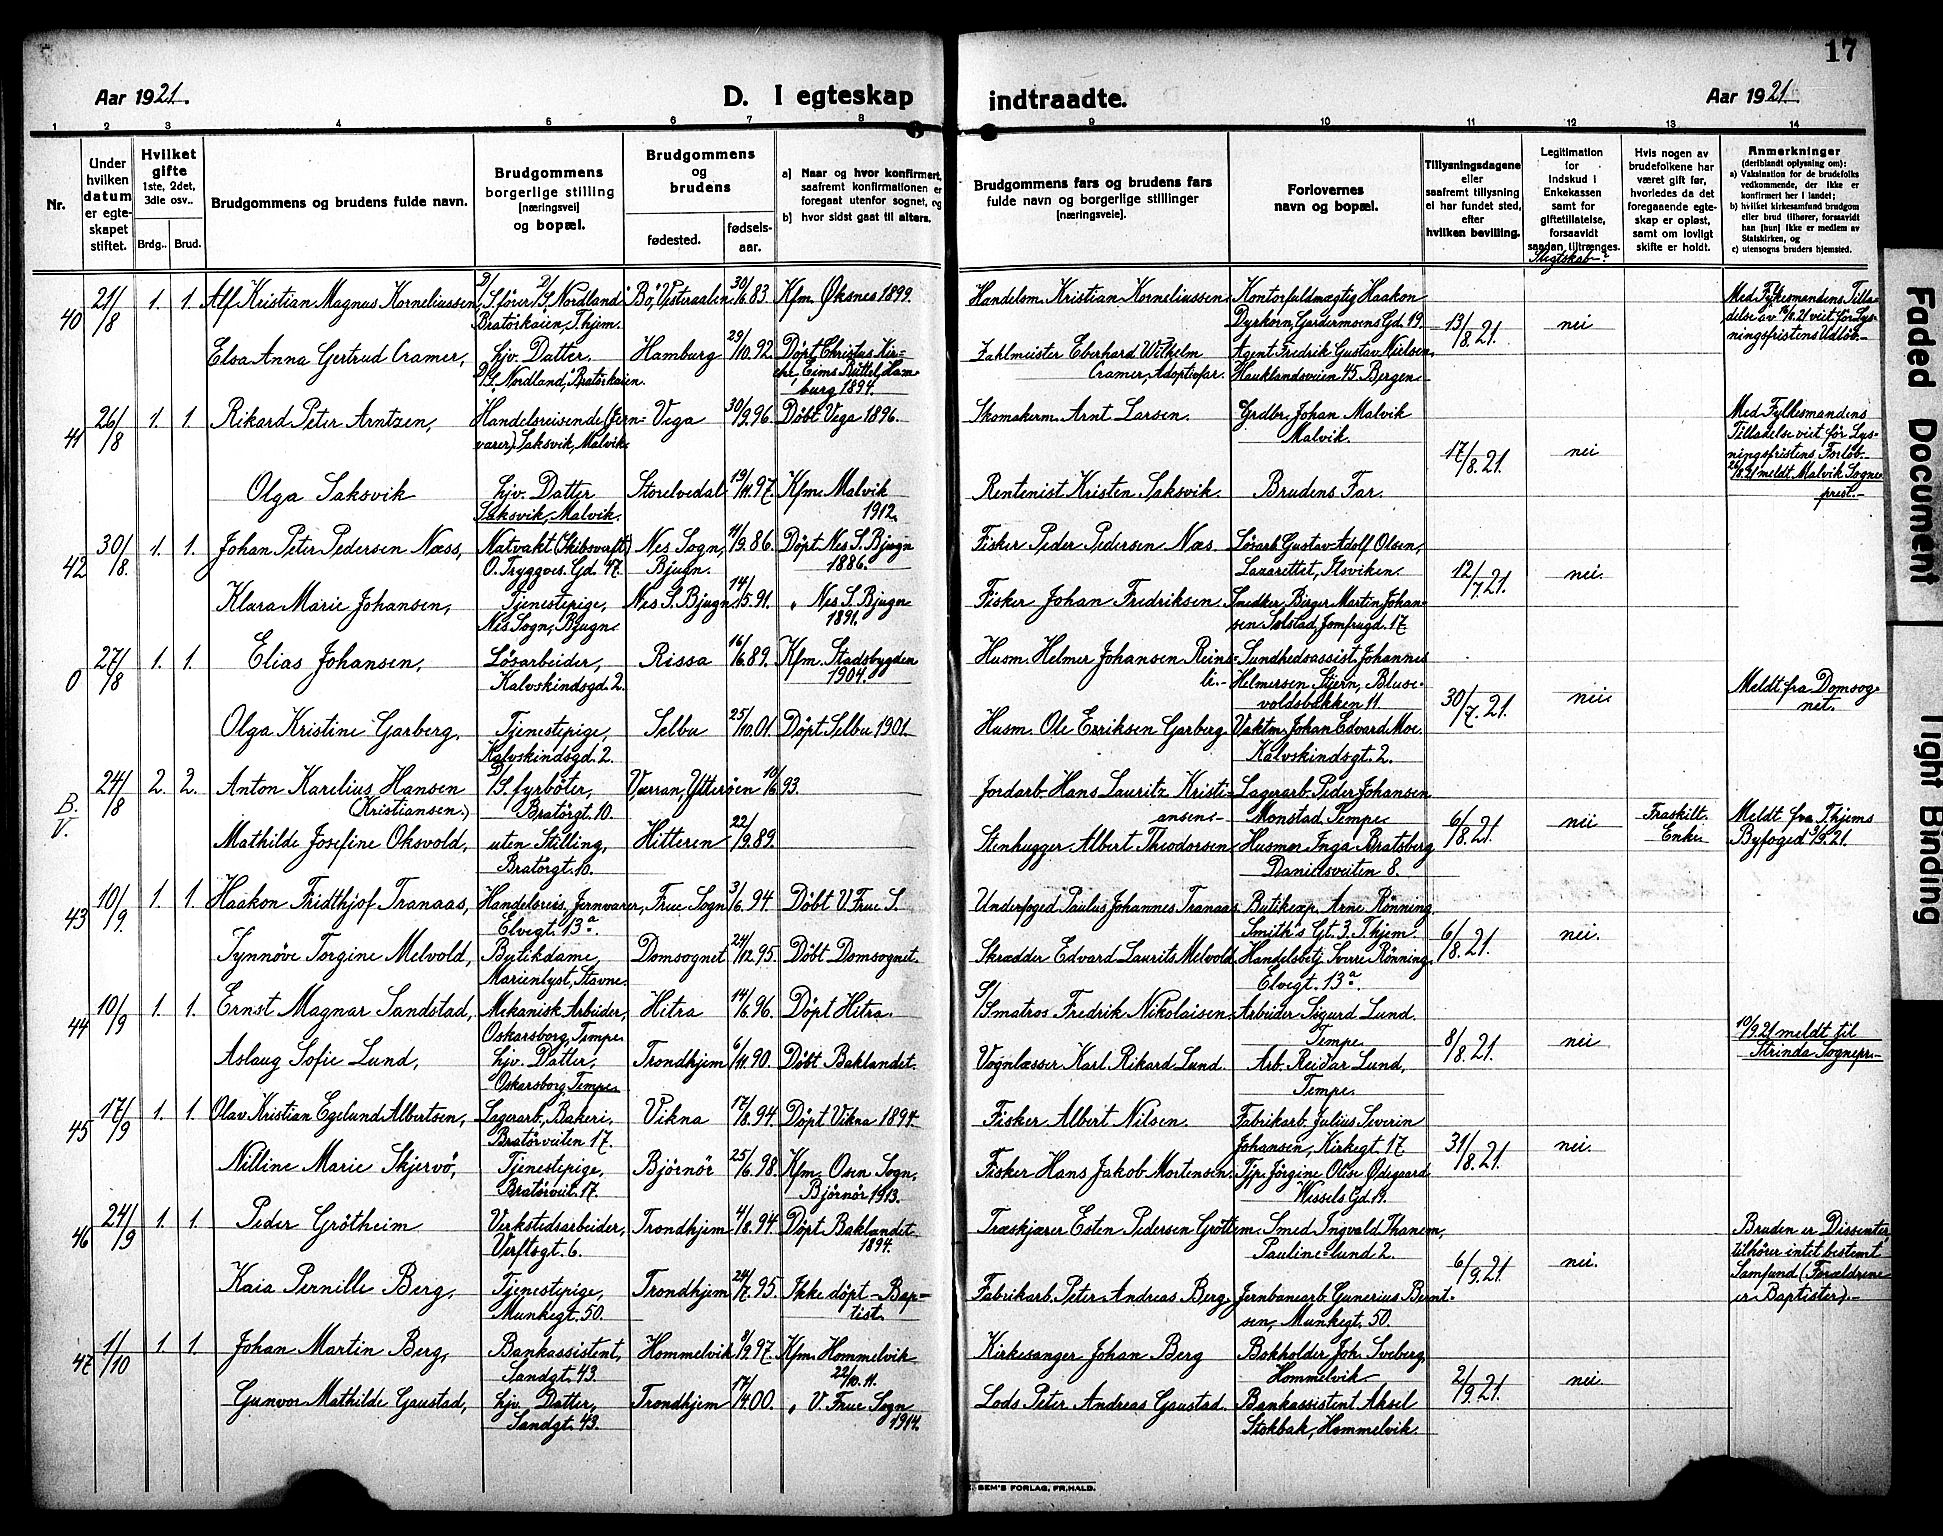 17
Aar 1921.
D. I egteskap indtraadte.
Aar 1921.
1 2 3 4 5 6 7 8 9 10 11 12 13 14
Nr.
Under hvilken datum er egteskapet stiftet.
Hvilket gifte 1ste, 2det, 3die osv..
Brdg.. Brud.
Brudgommens og brudens fulde navn.
Brudgommens borgerlige stilling (næringsvei) og bopæl.
Brudgommens og brudens
fødested. fødsels-aar.
a) Naar og hvor konfirmert, saafremt konfirmationen er foregaat utenfor sognet, og
b) hvor sidst gaat til alters.
Brudgommens fars og brudens fars fulde navn og borgerlige stillinger (næringsveie).
Forlovernes navn og bopæl.
Tillysningsdagene eller saafremt tillysning ei har fundet sted, efter hvilken bevilling.
Legitimation for Indskud i Enkekassen samt for giftetillatelse, forsaavidt saadan tiltrænges.
Slegtskab?
Hvis nogen av brudefolkene har været gift før, hvorledes da det foregaaende egteskap er opløst, samt om lovligt skifte er holdt.
Anmerkninger (deriblandt oplysning om):
a) Vaksination for de brudefolks vedkommende, der ikke er konfirmert her i landet;
b) hvilket kirkesamfund brudgom eller brud tilhører, forsaavidt han [hun] ikke er medlem av Statskirken, og
c) utensogns bruders hjemsted.
40 21/8 1. 1. Alf Kristian Magnus Korneliussen D/S fører D/S "Nordland" Bratørkaien, Thjem. Bø, Vesteraalen 30/6.83 Kfm. Øksnes 1899. Handelsm. Kristian Korneliussen. Kontorfuldmægtig Haakon Dyrkorn, Gardermoens Gd. 19. 13/8.21. nei Med Fylkesmandens Tilladelse av 19/8.21 viet før Lysningsfristens Udløb.
Elsa Anna Gertrud Cramer, hjv. Datter. D/S "Nordland", Bratørkaien. Hamburg 29/10.92 Døpt Christus Kirche, Eims Büttel, Hamburg 1894. Zahlmeister Eberhard Wilhelm Cramer, Adoptivfar. Agent Fredrik Gustav Nielsen, Hauklandsveien 45 Bergen
41 26/8 1. 1. Rikard Peter Arntzen, Handelsreisende (Jernvarer) Saksvik, Malvik. Vega 30/9.96 Døbt Vega 1896. Skomakerm. Arnt Larsen. Grdbr. Johan Malvik Malvik. 17/8.21. nei Med Fylkesmandens Tilladelse viet før Lysningsfristens Forløb. 26/8.21 meldt Malvik Sogneprest.
Olga Saksvik hjv. Datter Saksvik, Malvik. Storelvedal 19/11.97. Kfm. Malvik 1912. Rentenist Kristen Saksvik. Brudens Far.
42 30/8. 1. 1. Johan Peter Pedersen Næss, Natvakt (Skibsverft) O. Tryggves. Gd. 47. Nes Sogn, Bjugn. 11/9.86. Døpt Nes S. Bjugn 1886. Fisker Peder Pedersen Næs Løsarb. Gustav Adolf Olsen, Lazarettet, Ilsviken. 12/7.21. nei.
Klara Marie Johansen, Tjenestepige, Nes Sogn, Bjugn. Nes S. Bjugn 14/5.91. " Nes S. Bjugn 1891. Fisker Johan Fredriksen. Smedker. Birger Martin Johansen Solstad, Jomfrugd. 17.
0 27/8 1. 1. Elias Johansen, Løsarbeider, Kalvskindsgd. 2. Rissa 16/6.89. Kfm. Stadsbygden 1904. Husm. Helmer Johansen Reinsli. Sundhedsassist. Johannes Helmersen Stjern, Blusevoldsbakken 11. 30/7.21. nei. Meldt fra Domsognet.
Olga Kristine Garberg, Tjenestepige, Kalvskindsgd. 2. Selbu 25/10.01. Døpt Selbu 1901. Husm. Ole Eriksen Garberg. Vaktm. Johan Edvard Moe. Kalvskindsgt. 2.
B.V. 24/8 2. 2. Anton Karelius Hansen (Kristiansen.) D/S. fyrbøter, Bratørgt. 10. Værran, Ytterøen 10/6 93. Jordarb. Hans Lauritz Kristiansen. Lagerarb. Peder Johansen Monstad, Tempe 6/8.21. nei Fraskilt. Enke. Meldt fra Thjems Byfoged 3/9.21.
Mathilde Josefine Oksvold, uten Stilling, Bratørgt. 10. Hitteren 22/9.89. Stenhugger Albert Theodorsen Husmor Inga Bratsberg Danielsveiten 8.
43 10/9. 1. 1. Haakon Fridthjof Tranaas, Handelsreis. Jernvarer, Elvegt. 13a. Frue Sogn 3/6.94. Døbt V. Frue S. Underfoged Paulus Johannes Tranaas Butikexp. Arne Rønning. Smith's Gt. 3. Thjem. 6/8.21. nei.
Synnøve Torgine Melvold, Butikdame, Marienlyst, Stavne. Domsognet 24/12.95. Døbt Domsognet. Skrædder Edvard Laurits Melvold. Handelsbetj. Sverre Rønning. Elvegt. 13a.
44 10/9 1. 1. Ernst Magnar Sandstad, Mekanisk Arbeider, Oskarsborg, Tempe. Hitra 14/6.96. Døpt Hitra. S/Smatros Fredrik Nikolaisen Arbeider Sigurd Lund. Tempe. 8/8.21. nei 10/9.21 meldt til Strinda Sognepr.
Aslaug Sofie Lund, hjv. Datter, Oskarsborg, Tempe. Trondhjem 6/11.90. Døbt Baklandet. Vognlæsser Karl Rikard Lund. Arb. Reidar Lund, Tempe.
45 17/9 1. 1. Olav Kristian Egelund Albertsen, Lagerarb., Bakeri, Bratørveiten 17. Vikna 17/8.94. Døpt Vikna 1894. Fisker Albert Nilsen. Fabrikarb. Julius Severin Johansen, Kirkegt. 17. 31/8.21. nei.
Nilline Marie Skjervø, Tjenestepige, Bratørveit. 17. Bjørnør 25/6.98. Kfm. Osen Sogn, Bjørnør 1913. Fisker Hans Jakob Mortensen. Tjp. Jørgine Olise Ødegaard Wessels Gd. 19.
46 24/9 1. 1. Peder Grøtheim Verkstedsarbeider, Verftsgt. 6. Trondhjem 4/8.94. Døpt Baklandet 1894. Træskjærer Esten Pedersen Grøttem. Smed Ingvald Thanem, Paulinelund 2. 6/9.21. nei. Bruden er Dissenter, tilhører intet bestemt Samfund (Forældrene er Baptister).
Kaia Pernille Berg, Tjenestepige, Munkegt. 50. Trondhjem 24/7.95. Ikke døpt - Baptist. Fabrikarb. Peter Andreas Berg, Jernbanearb. Gunerius Berntsen, Munkegt. 50.
47 1/10 1. 1. Johan Martin Berg, Bankassistent, Sandgt. 43. Hommelvik 8/9.97. Kfm. Hommelvik 22/10.11. Kirkesanger Johan Berg Bokholder Joh. Sveberg, Hommelvik 2/9.21. nei.
Gunvor Mathilde Gaustad, hjv. Datter, Sandgt. 43. Trondhjem 17/4.00. " V. Frue Sogn 1914. Lods Peter Andreas Gaustad. Bankassistent Aksel Stokbak, Hommelvik.
SEM'S FORLAG, FR.HALD.
Faded Document
Tight Binding